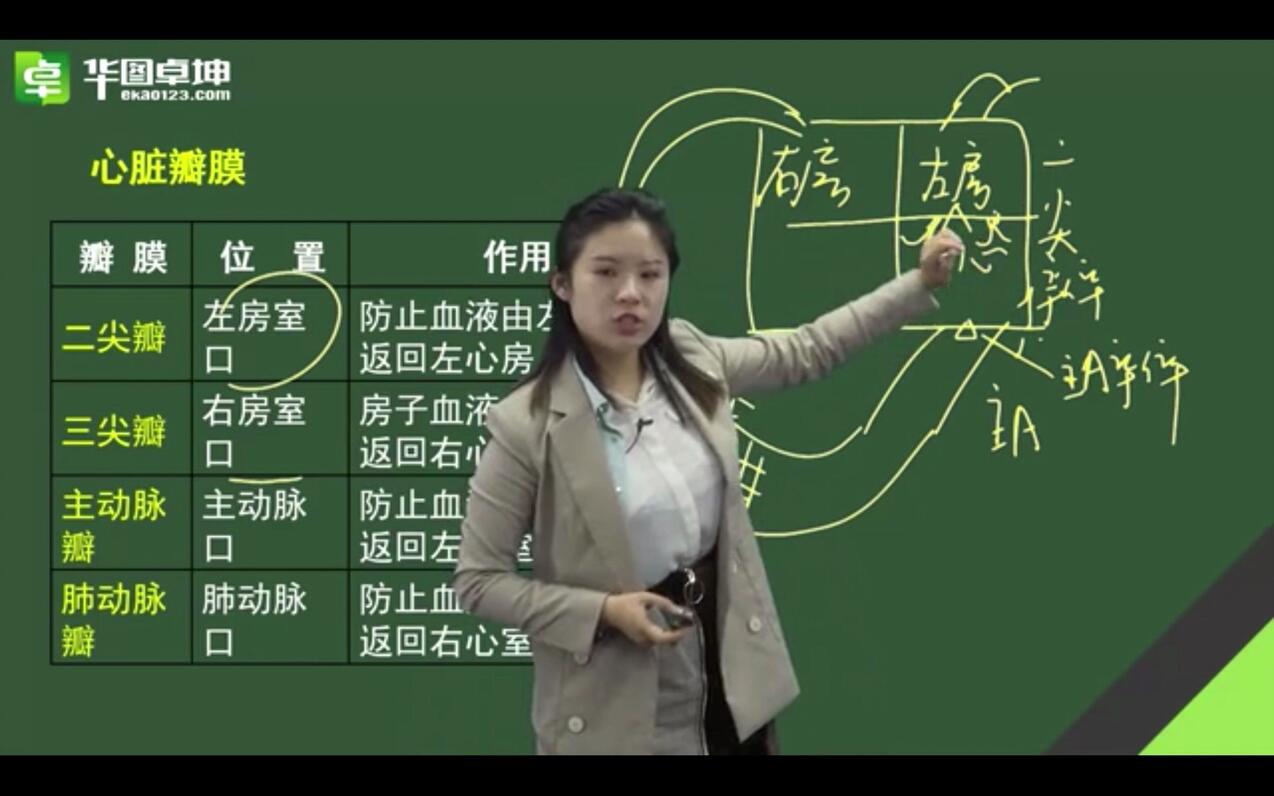 华图卓坤
ekao123.com
心脏瓣膜
瓣 膜 位 置 作用
二尖瓣 左房室口 防止血液由左
返回左心房
三尖瓣 右房室口 房子血液
返回右心
主动脉瓣 主动脉口 防止血
返回左 室
肺动脉瓣 肺动脉口 防止血
返回右心室
右房
左房
二
尖
主A